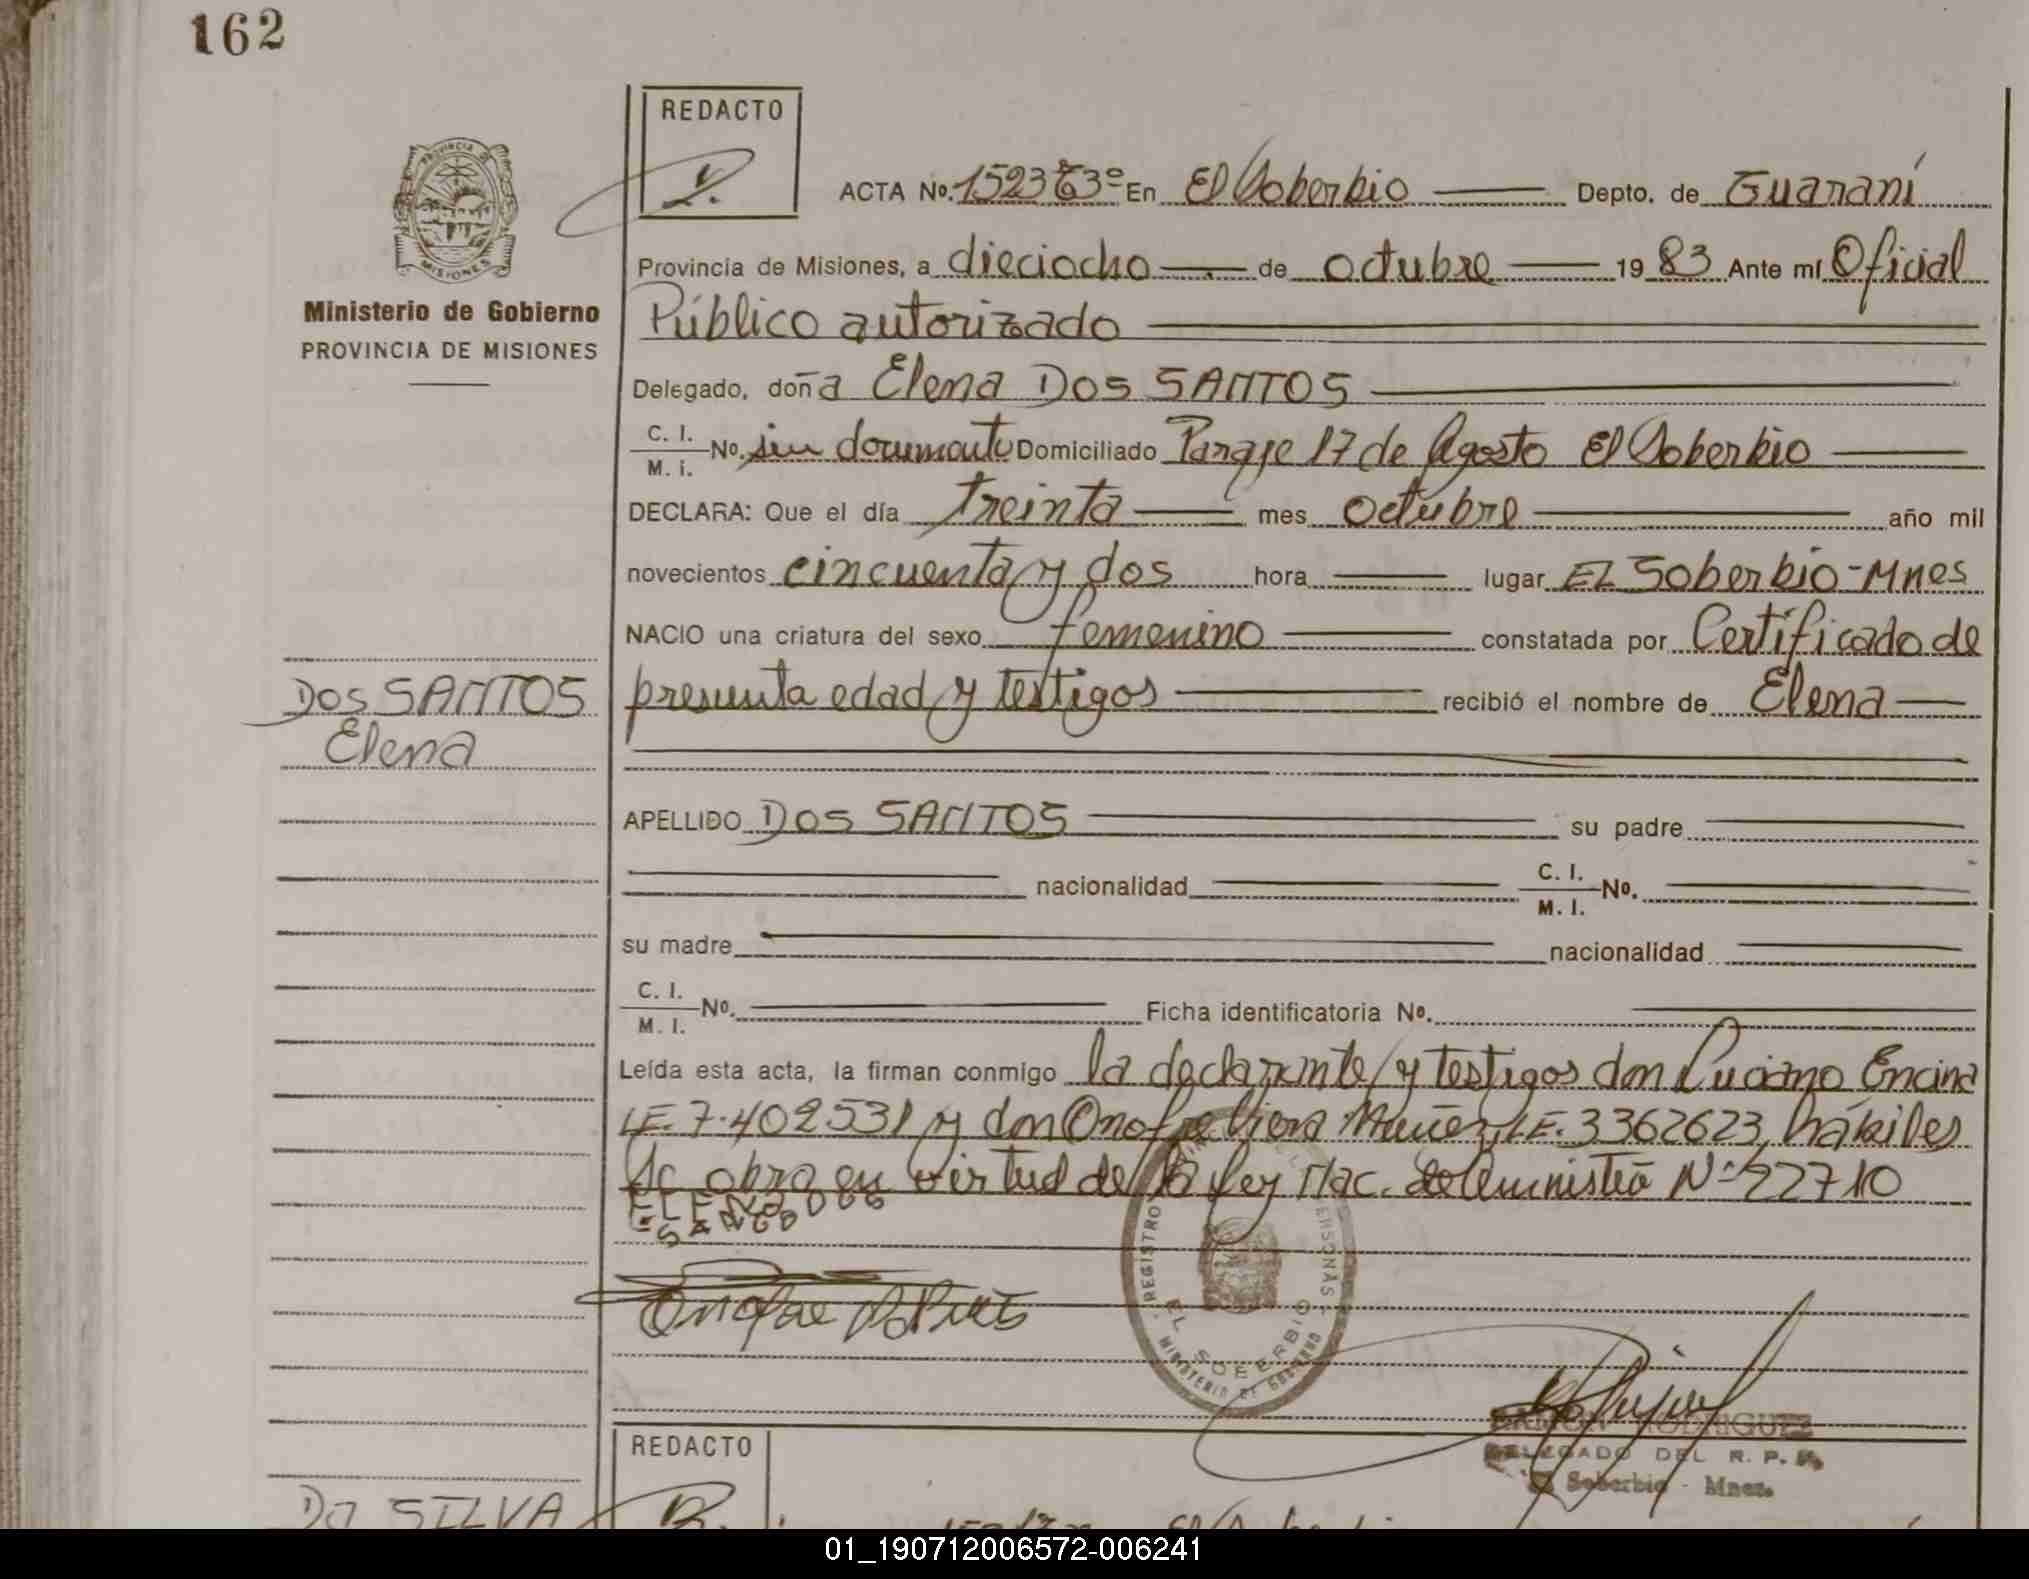 162
REDACTO
ACTA No. 1523 T3º En El Soberbio Depto. de Guaraní
Provincia de Misiones, a dieciocho de octubre 1983 Ante mí Oficial
Ministerio de Gobierno
PROVINCIA DE MISIONES
Público autorizado
Delegado, doña Elena Dos SANTOS
C. I. M. i. No. sin documento Domiciliado Paraje 17 de Agosto El Soberbio
DECLARA: Que el día treinta mes octubre año mil
novecientos cincuenta y dos hora lugar EL Soberbio-Mnes
NACIO una criatura del sexo femenino constatada por Certificado de
presunta edad y testigos recibió el nombre de Elena
Dos SANTOS
Elena
APELLIDO Dos SANTOS su padre
nacionalidad C. I. M. I. No.
su madre nacionalidad
C. I. M. I. No. Ficha identificatoria No.
Leída esta acta, la firman conmigo la declarante y testigos don Luciano Encina
LE. 7.402531 y don Onofre Viera Muñez LE. 3362623, hábiles
Se obra en virtud de la Ley Nac. de Amnistía Nº 22710
ELENA DOS
SANTO
Onofre
REGISTRO PERSONAS
EL SOBERBIO
MINISTERIO DE GOBIERNO
RAMON RODRIGUEZ
DELEGADO DEL R. P. P.
El Soberbio - Mnes.
REDACTO
Da SILVA
01_190712006572-006241